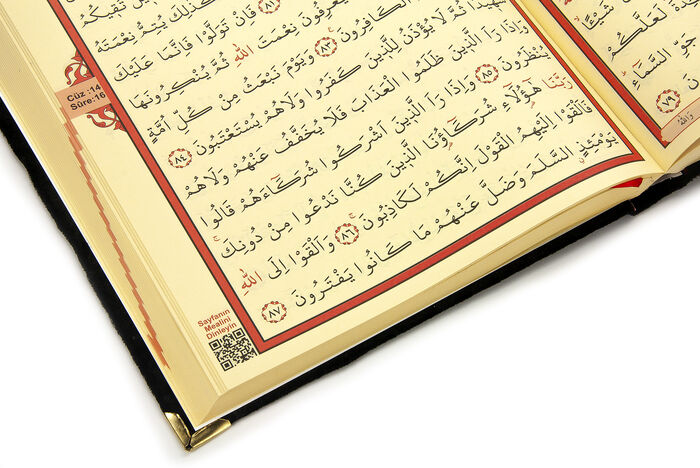 شَيْـًٔا
لَعَلَّكُمْ
جَوِّ السَّمَٓاءِ
﴿٧٩﴾
وَاللّٰهُ
تَقِيكُمْ
كَذٰلِكَ يُتِمُّ نِعْمَتَهُ
﴿٨١﴾ فَاِنْ تَوَلَّوْا فَاِنَّمَا عَلَيْكَ
يَعْرِفُونَ نِعْمَتَ اللّٰهِ ثُمَّ يُنْكِرُونَهَا
الْكَافِرُونَ ﴿٨٣﴾ وَيَوْمَ نَبْعَثُ مِنْ كُلِّ اُمَّةٍ
شَهِيدًا ثُمَّ لَا يُؤْذَنُ لِلَّذِينَ كَفَرُوا وَلَا هُمْ يُسْتَعْتَبُونَ ﴿٨٤﴾
وَاِذَا رَاَ الَّذِينَ ظَلَمُوا الْعَذَابَ فَلَا يُخَفَّفُ عَنْهُمْ وَلَا هُمْ
يُنْظَرُونَ ﴿٨٥﴾ وَاِذَا رَاَ الَّذِينَ اَشْرَكُوا شُرَكَٓاءَهُمْ قَالُوا
رَبَّنَا هٰٓؤُ۬لَٓاءِ شُرَكَٓاؤُ۬نَا الَّذِينَ كُنَّا نَدْعُوا مِنْ دُونِكَ
فَاَلْقَوْا اِلَيْهِمُ الْقَوْلَ اِنَّكُمْ لَكَاذِبُونَ ﴿٨٦﴾ وَاَلْقَوْا اِلَى اللّٰهِ
يَوْمَئِذٍ السَّلَمَ وَضَلَّ عَنْهُمْ مَا كَانُوا يَفْتَرُونَ ﴿٨٧﴾
Cüz :14
Sûre:16
Sayfanın
Mealini
Dinleyin